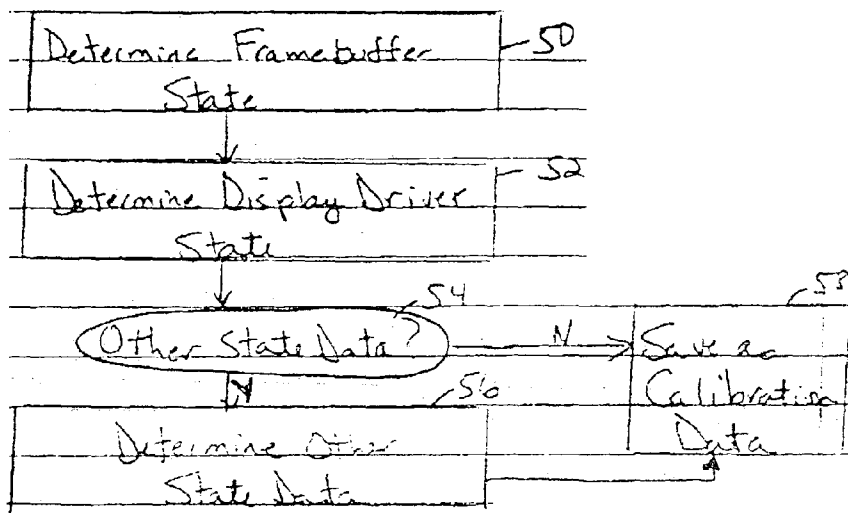 Determine Framebuffer
State
50
Determine Display Driver
State
52
Other State Data?
54
N
Save as
Calibration
Data
53
Y
Determine Other
State Data
56